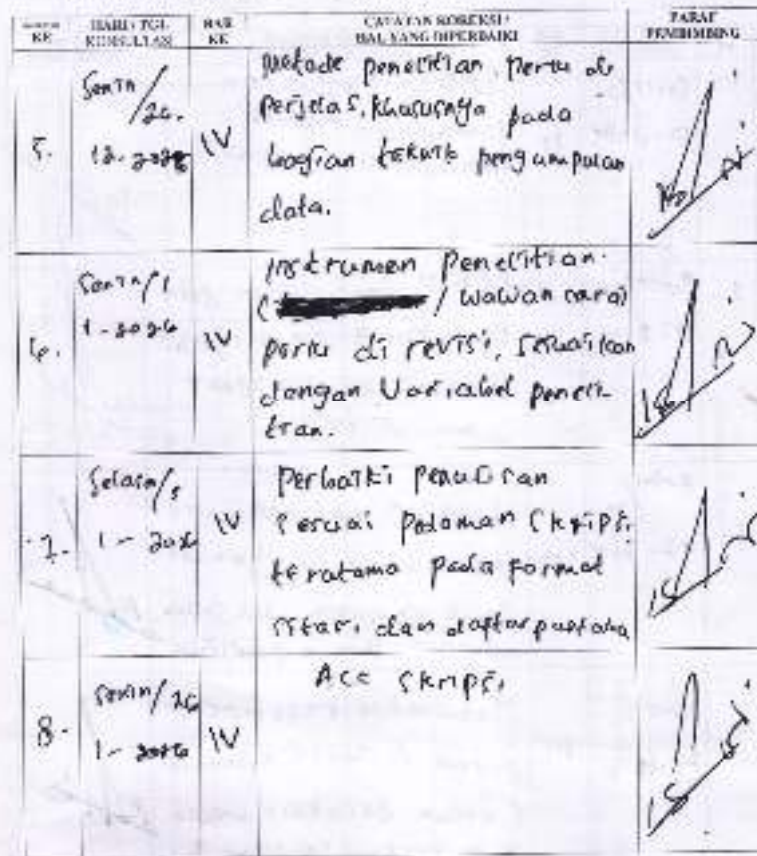 KE
HARI / TGL
KONSULTASI
BAB
KE
CATATAN KOREKSI /
HAL YANG DIPERBAIKI
PARAF
PEMBIMBING
5.
Senin /
12-
IV
Metode penelitian, perlu di
perjelas, khususnya pada
bagian teknik pengumpulan
data.
6.
Senin /
1-2026
IV
Instrumen penelitian
/ wawancara)
perlu di revisi, sesuaikan
dengan Variabel peneli-
tian.
7.
Selasa /
1-2026
IV
Perbaiki penulisan
sesuai pedoman Skripsi
terutama pada format
sitasi, dan daftar pustaka
8.
Senin / 26
1-2026
IV
Acc Skripsi